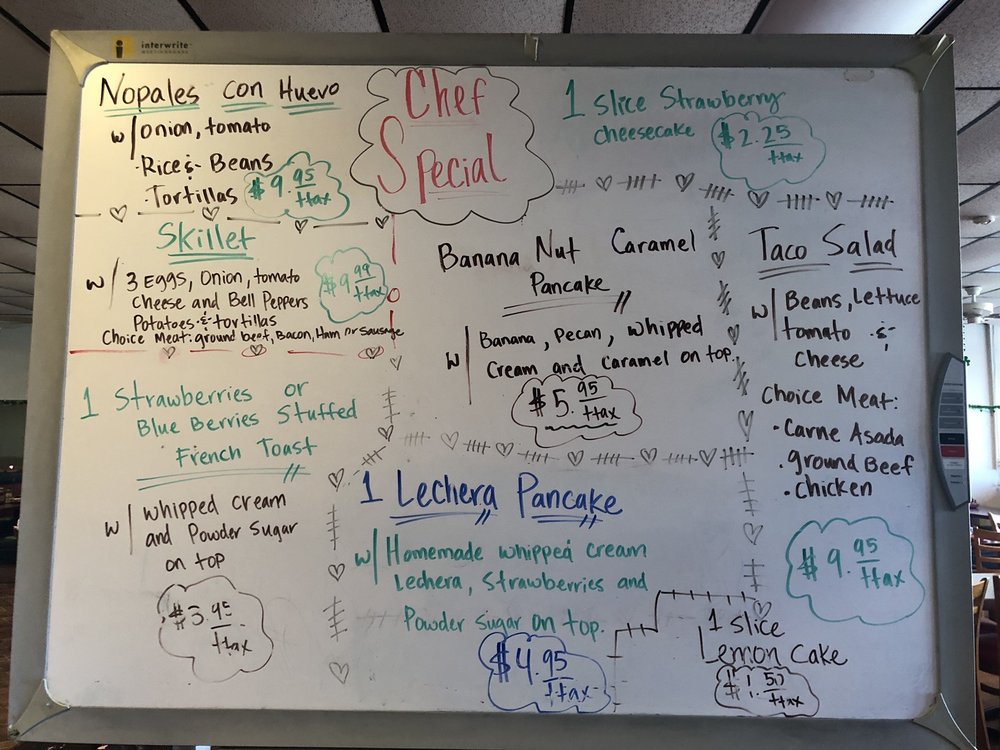 interwrite
Chef
Special
Nopales con Huevo
w/ Onion, tomato
·Rice &· Beans
·Tortillas
$9.95/+tax
Skillet
w/ 3 Eggs, Onion, tomato
Cheese and Bell Peppers
Potatoes ·&· tortillas
Choice Meat: ground beef, Bacon, Ham or Sausage
$9.99/+tax
1 Strawberries or
Blue Berries Stuffed
French Toast
w/ whipped cream
and Powder Sugar
on top
$3.95/+tax
1 slice Strawberry
cheesecake
$2.25/+tax
Banana Nut Caramel
Pancake
w/ Banana, pecan, whipped
Cream and Caramel on top.
$5.95/+tax
1 Lechera Pancake
w/ Homemade whipped cream
Lechera, Strawberries and
Powder sugar on top.
$4.95/+tax
Taco Salad
w/ Beans, Lettuce
tomato ·&·
cheese
Choice Meat:
·Carne Asada
·ground Beef
·Chicken
$9.95/+tax
1 slice
Lemon Cake
$1.50/+tax